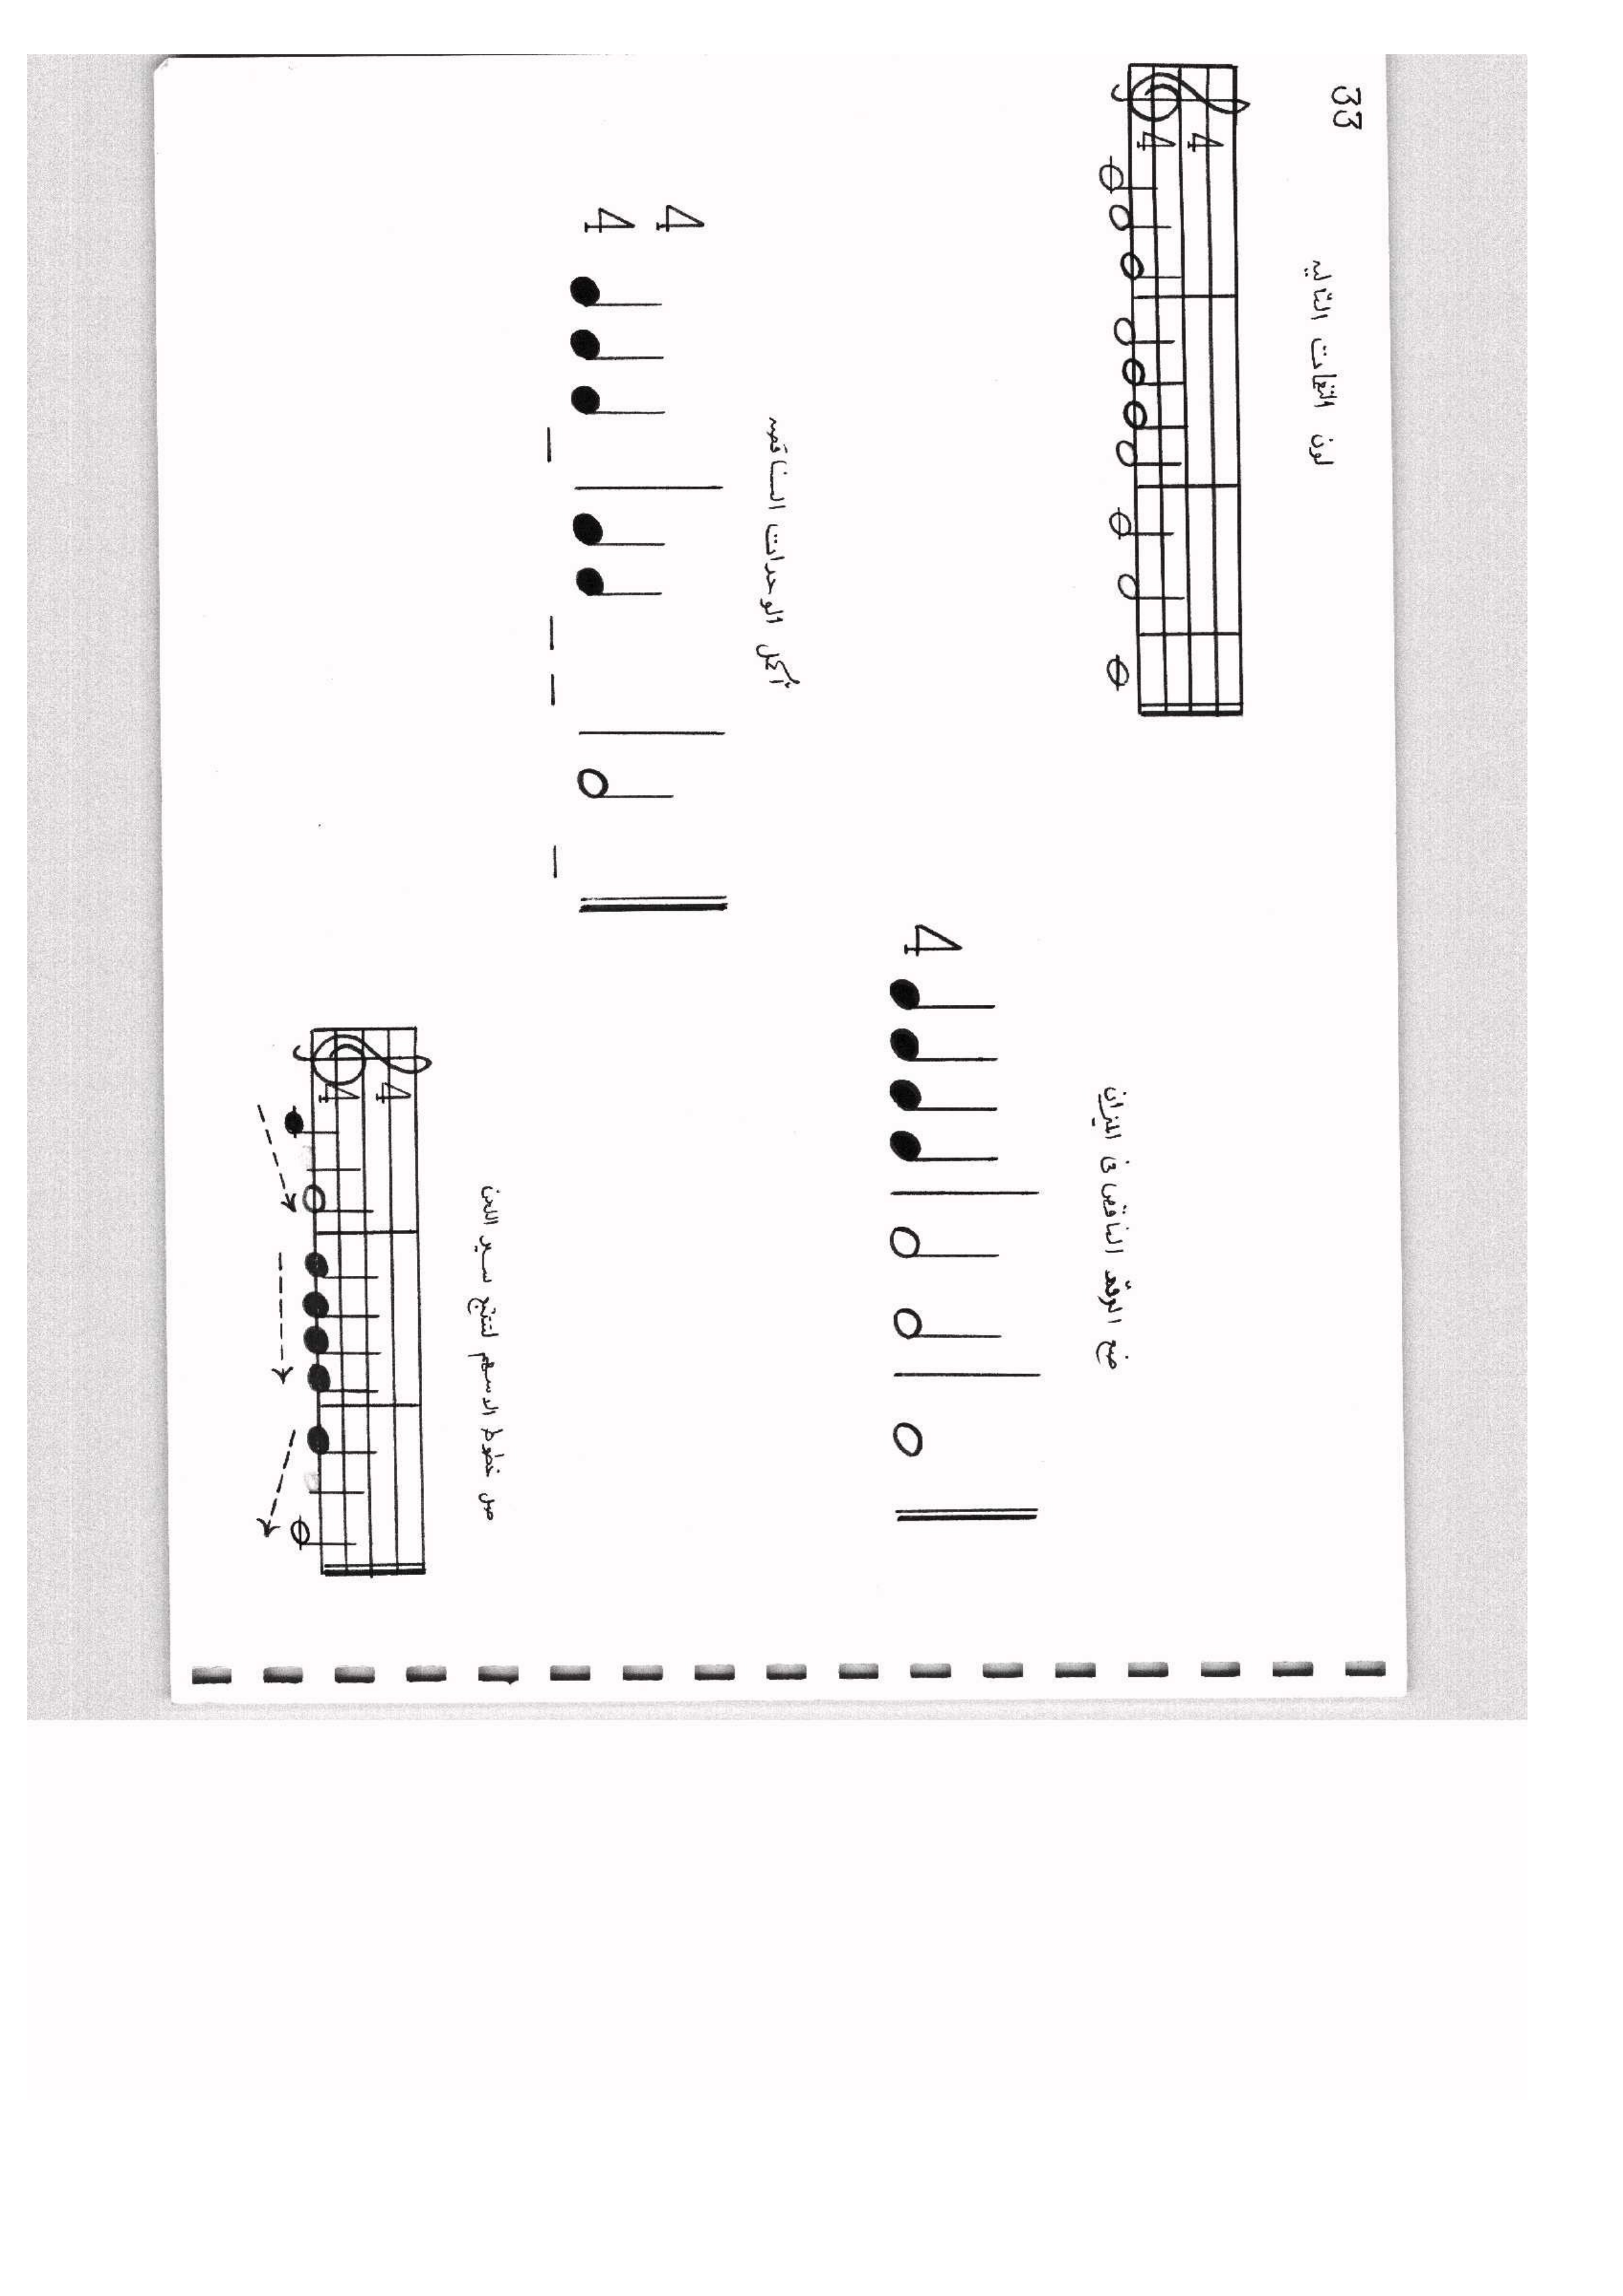 33
لون النغمات التاليه
4
4
ضع الرقم الناقص فى الميزان
4
أكمل الوحدات الناقصه
4
4
صل خطوط الاسهم لتتبع سير اللحن
4
4